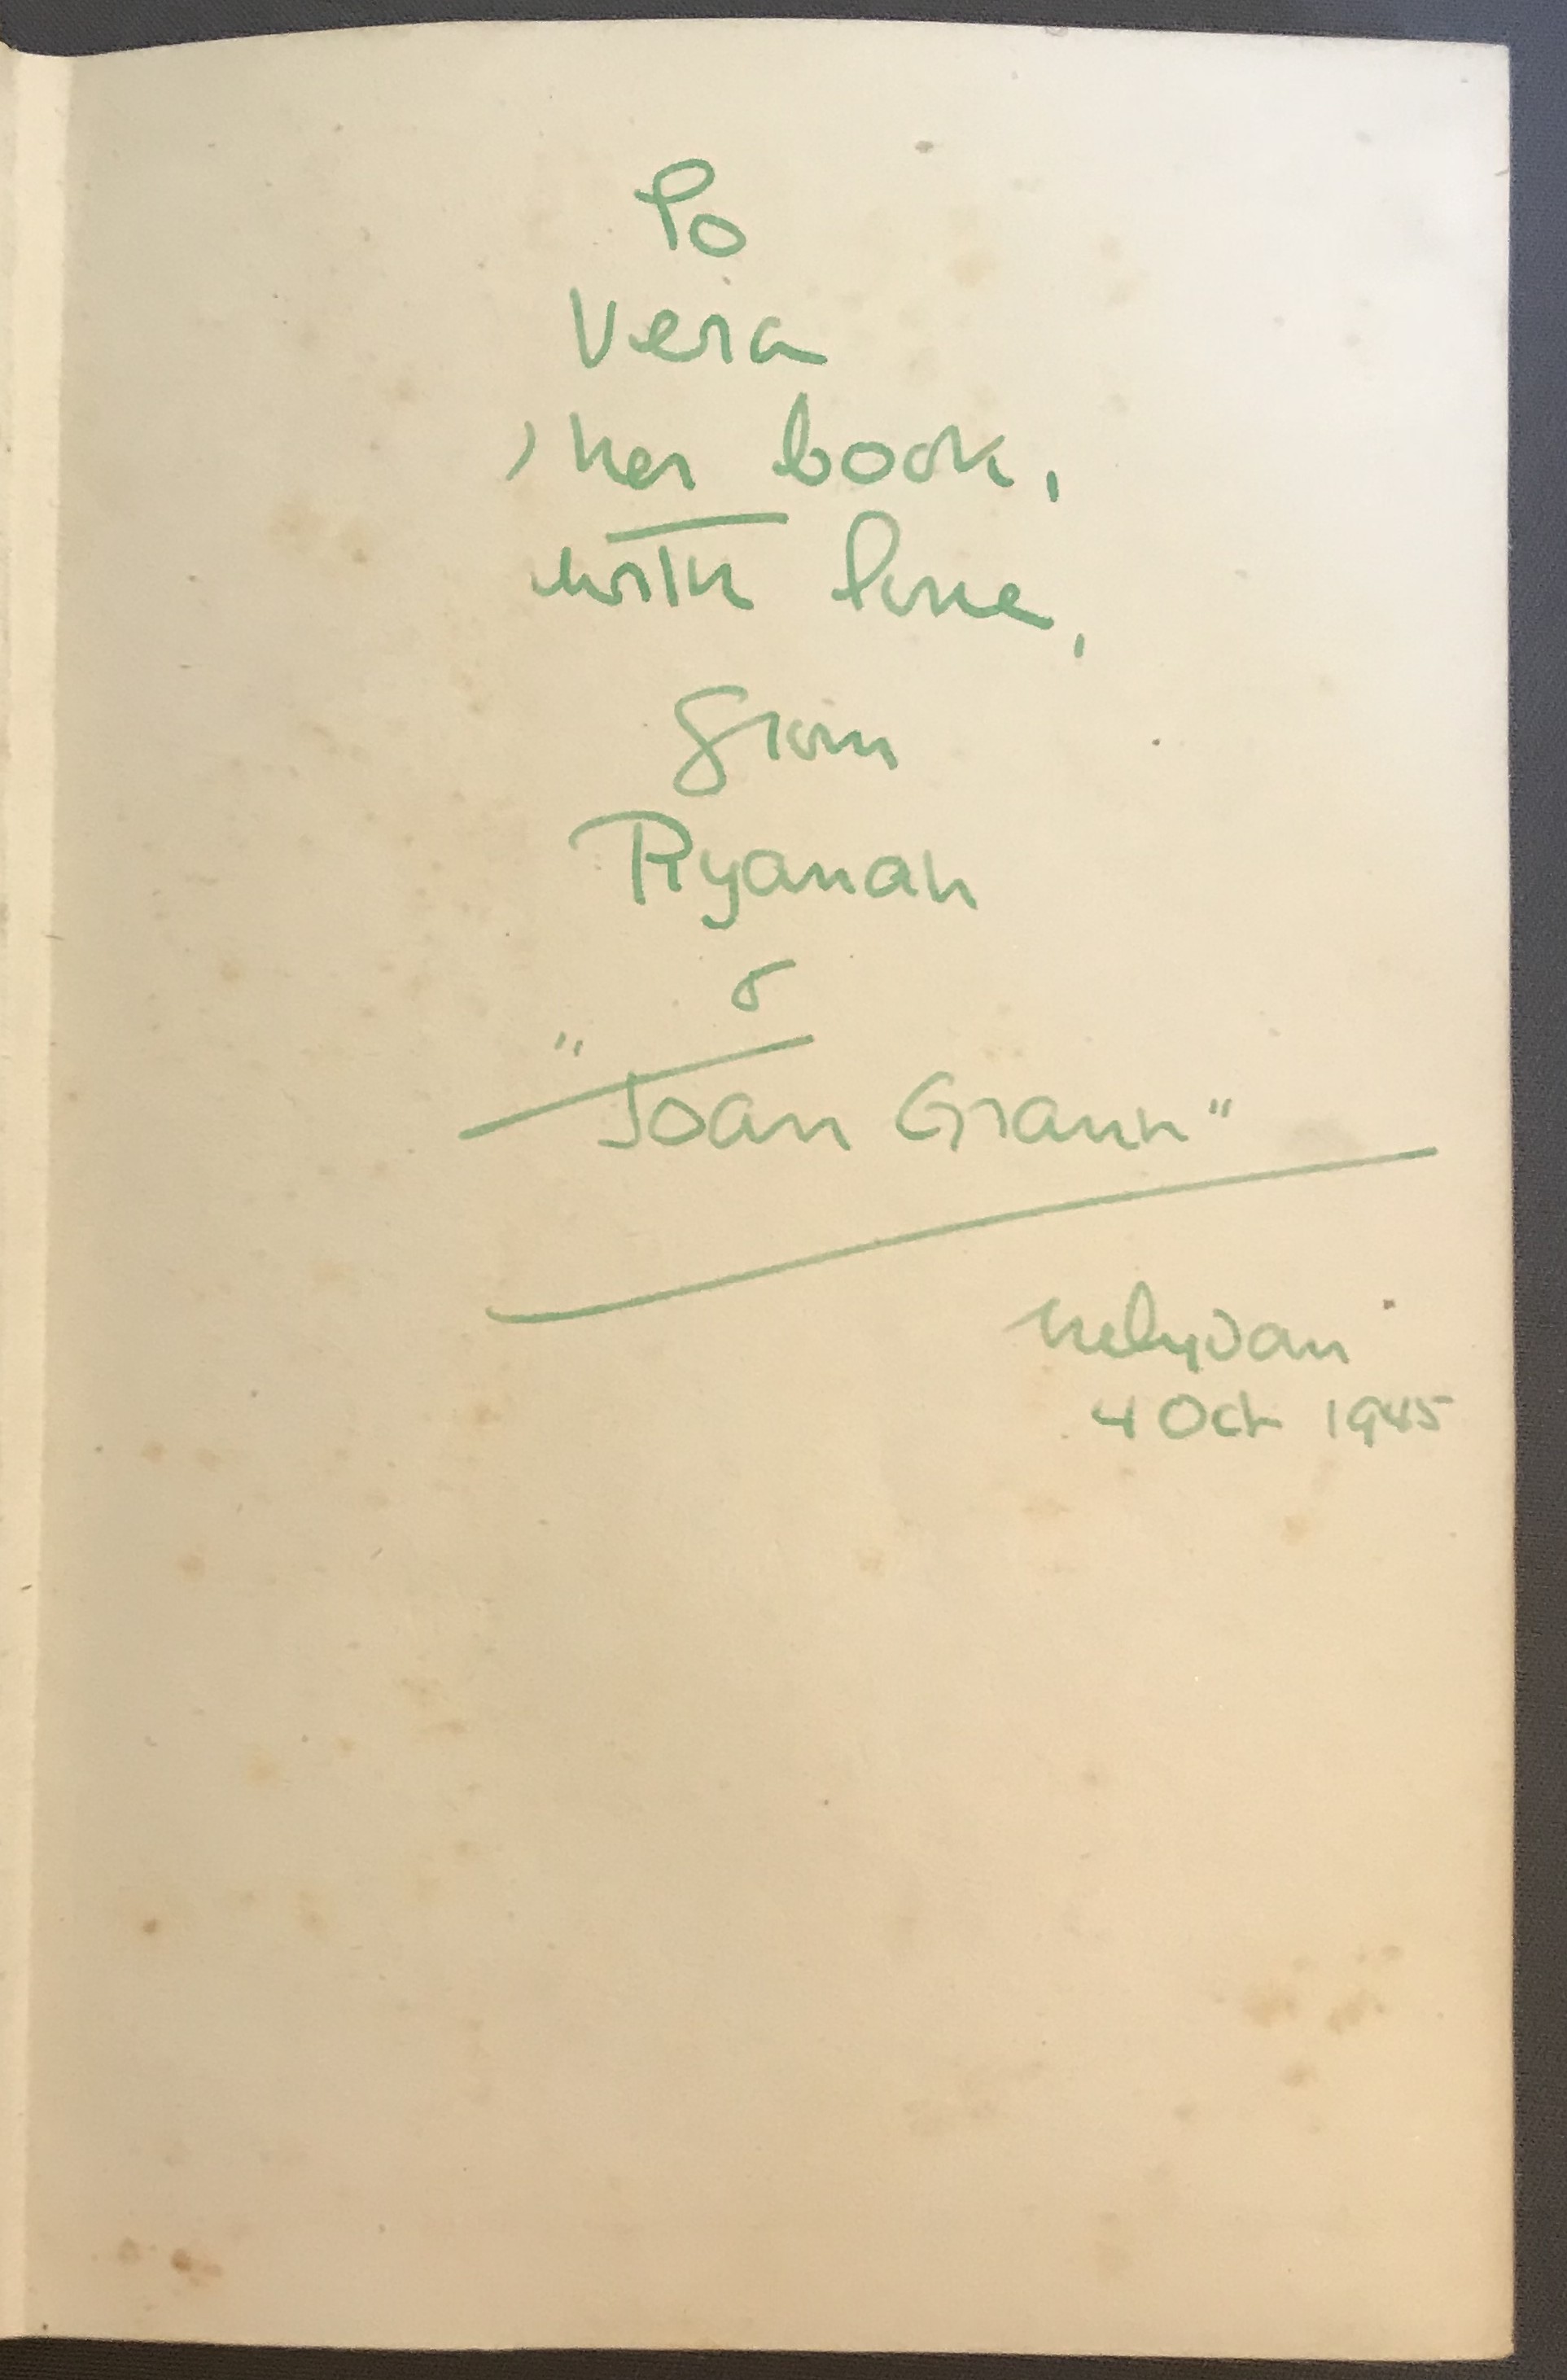 To
Vera
, her book,
with love,
from
Ryanah
&
"Joan Grant"
Trelydan
4 Oct 1945